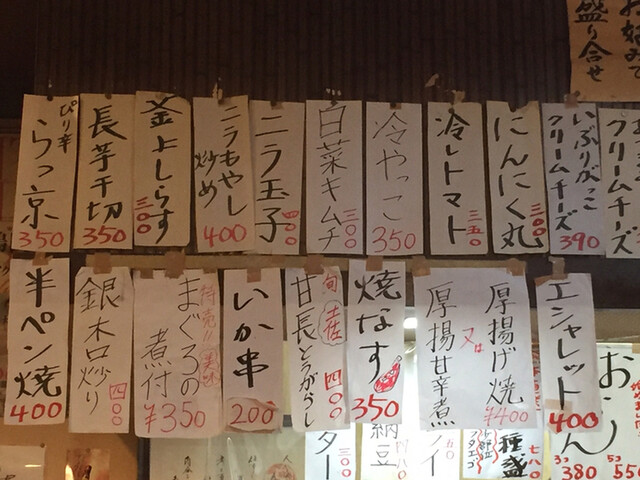 お好みで
盛り合せ
ぴり辛
らっ京
350
長芋千切
350
釜上しらす
三〇〇
ニラもやし
炒め
400
ニラ玉子
四〇〇
白菜キムチ
三〇〇
冷やっこ
350
冷しトマト
三五〇
にんにく丸
三〇〇
いぶりがっこ
クリームチーズ
390
クリームチーズ
半ペン焼
400
銀杏炒り
四〇〇
待売!!美味
まぐろの
煮付
¥350
いか串
200
旬 土佐
甘長とうがらし
四〇〇
焼なす
350
厚揚げ焼
又は
厚揚甘辛煮
¥400
エシャレット
400
ター
三〇〇
納豆
イ
種盛
七八〇
おでん
5コ
550
3コ
380